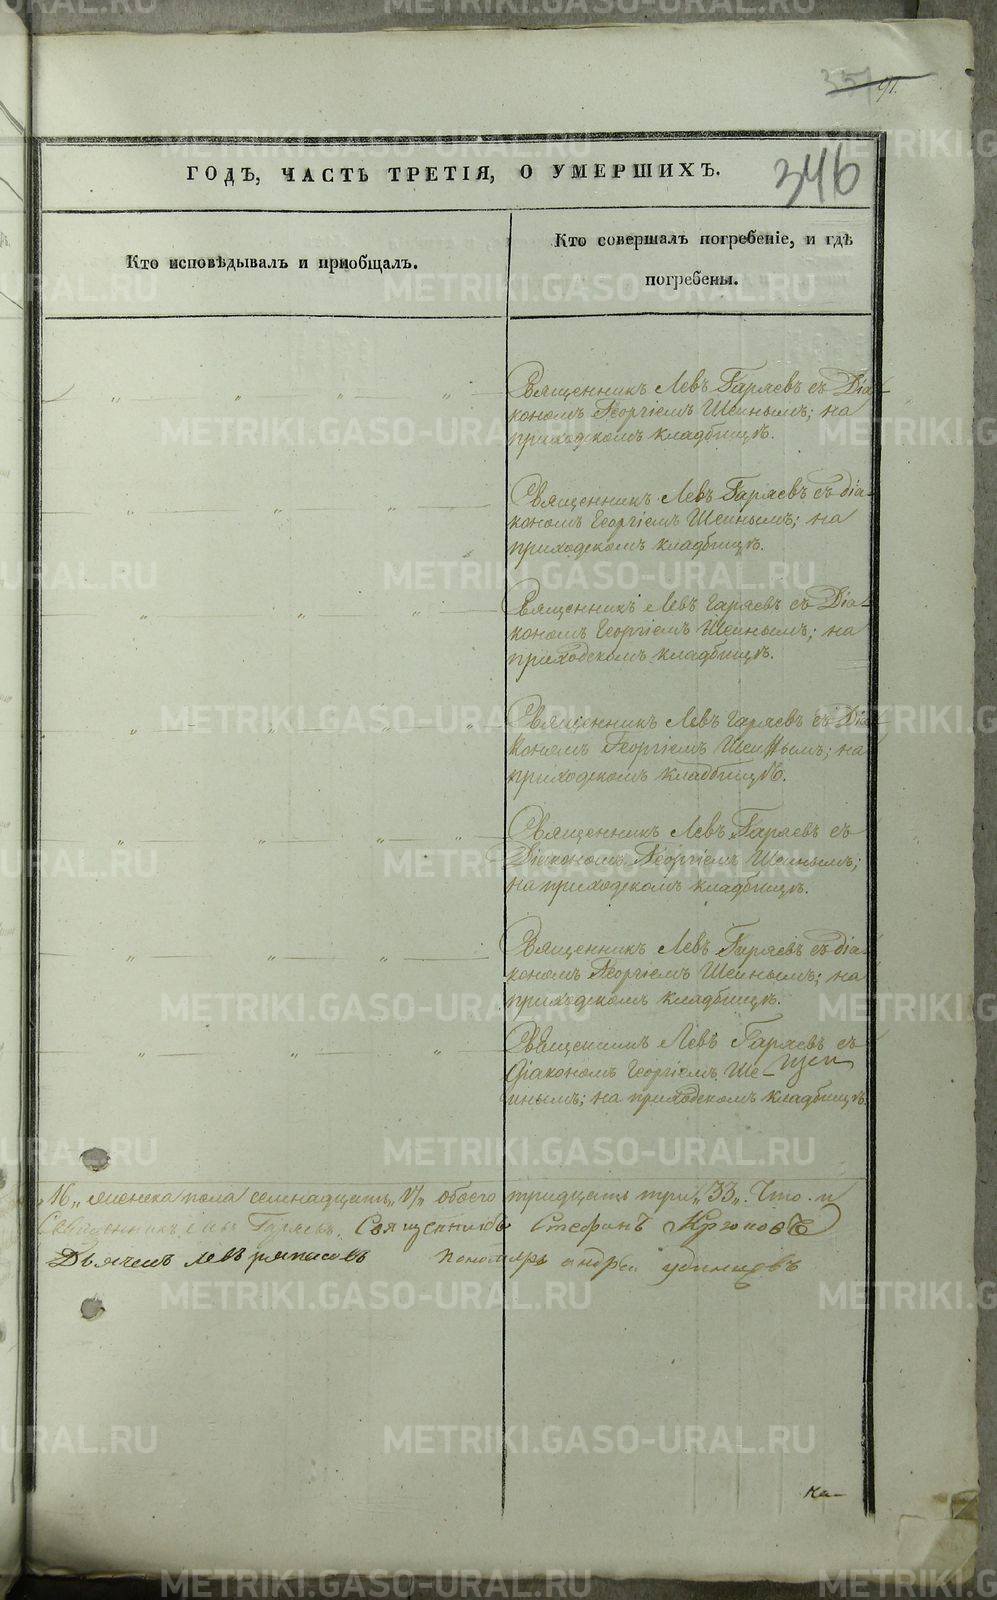 91.
346
ГОДЪ, ЧАСТЬ ТРЕТІЯ, О УМЕРШИХЪ.
Кто исповѣдывалъ и пріобщалъ.
Кто совершалъ погребеніе, и гдѣ
погребены.
Священникъ Левъ Гаряевъ съ Діа-
кономъ Георгіемъ Шеинымъ; на
приходскомъ кладбищѣ.
Священникъ Левъ Гаряевъ съ діа-
кономъ Георгіемъ Шеинымъ; на
приходскомъ кладбищѣ.
Священникъ Левъ Гаряевъ съ Діа-
кономъ Георгіемъ Шеинымъ; на
приходскомъ кладбищѣ.
Священникъ Левъ Гаряевъ съ Діа-
кономъ Георгіемъ Шеинымъ; на
приходскомъ кладбищѣ.
Священникъ Левъ Гаряевъ съ
Діакономъ Георгіемъ Шеинымъ;
на приходскомъ кладбищѣ.
Священникъ Левъ Гаряевъ съ діа-
кономъ Георгіемъ Шеинымъ; на
приходскомъ кладбищѣ.
Священникъ Левъ Гаряевъ съ
Діакономъ Георгіемъ Ше-
инымъ; на приходскомъ кладбищѣ.
„16„ женска пола семнадцать „17„ обоего тридцать три „33„. Что и
Священникъ Левъ Гаряевъ. Священникъ Стефанъ
Дьячекъ левъ пономарь андрей удинцовъ
METRIKI.GASO-URAL.RU